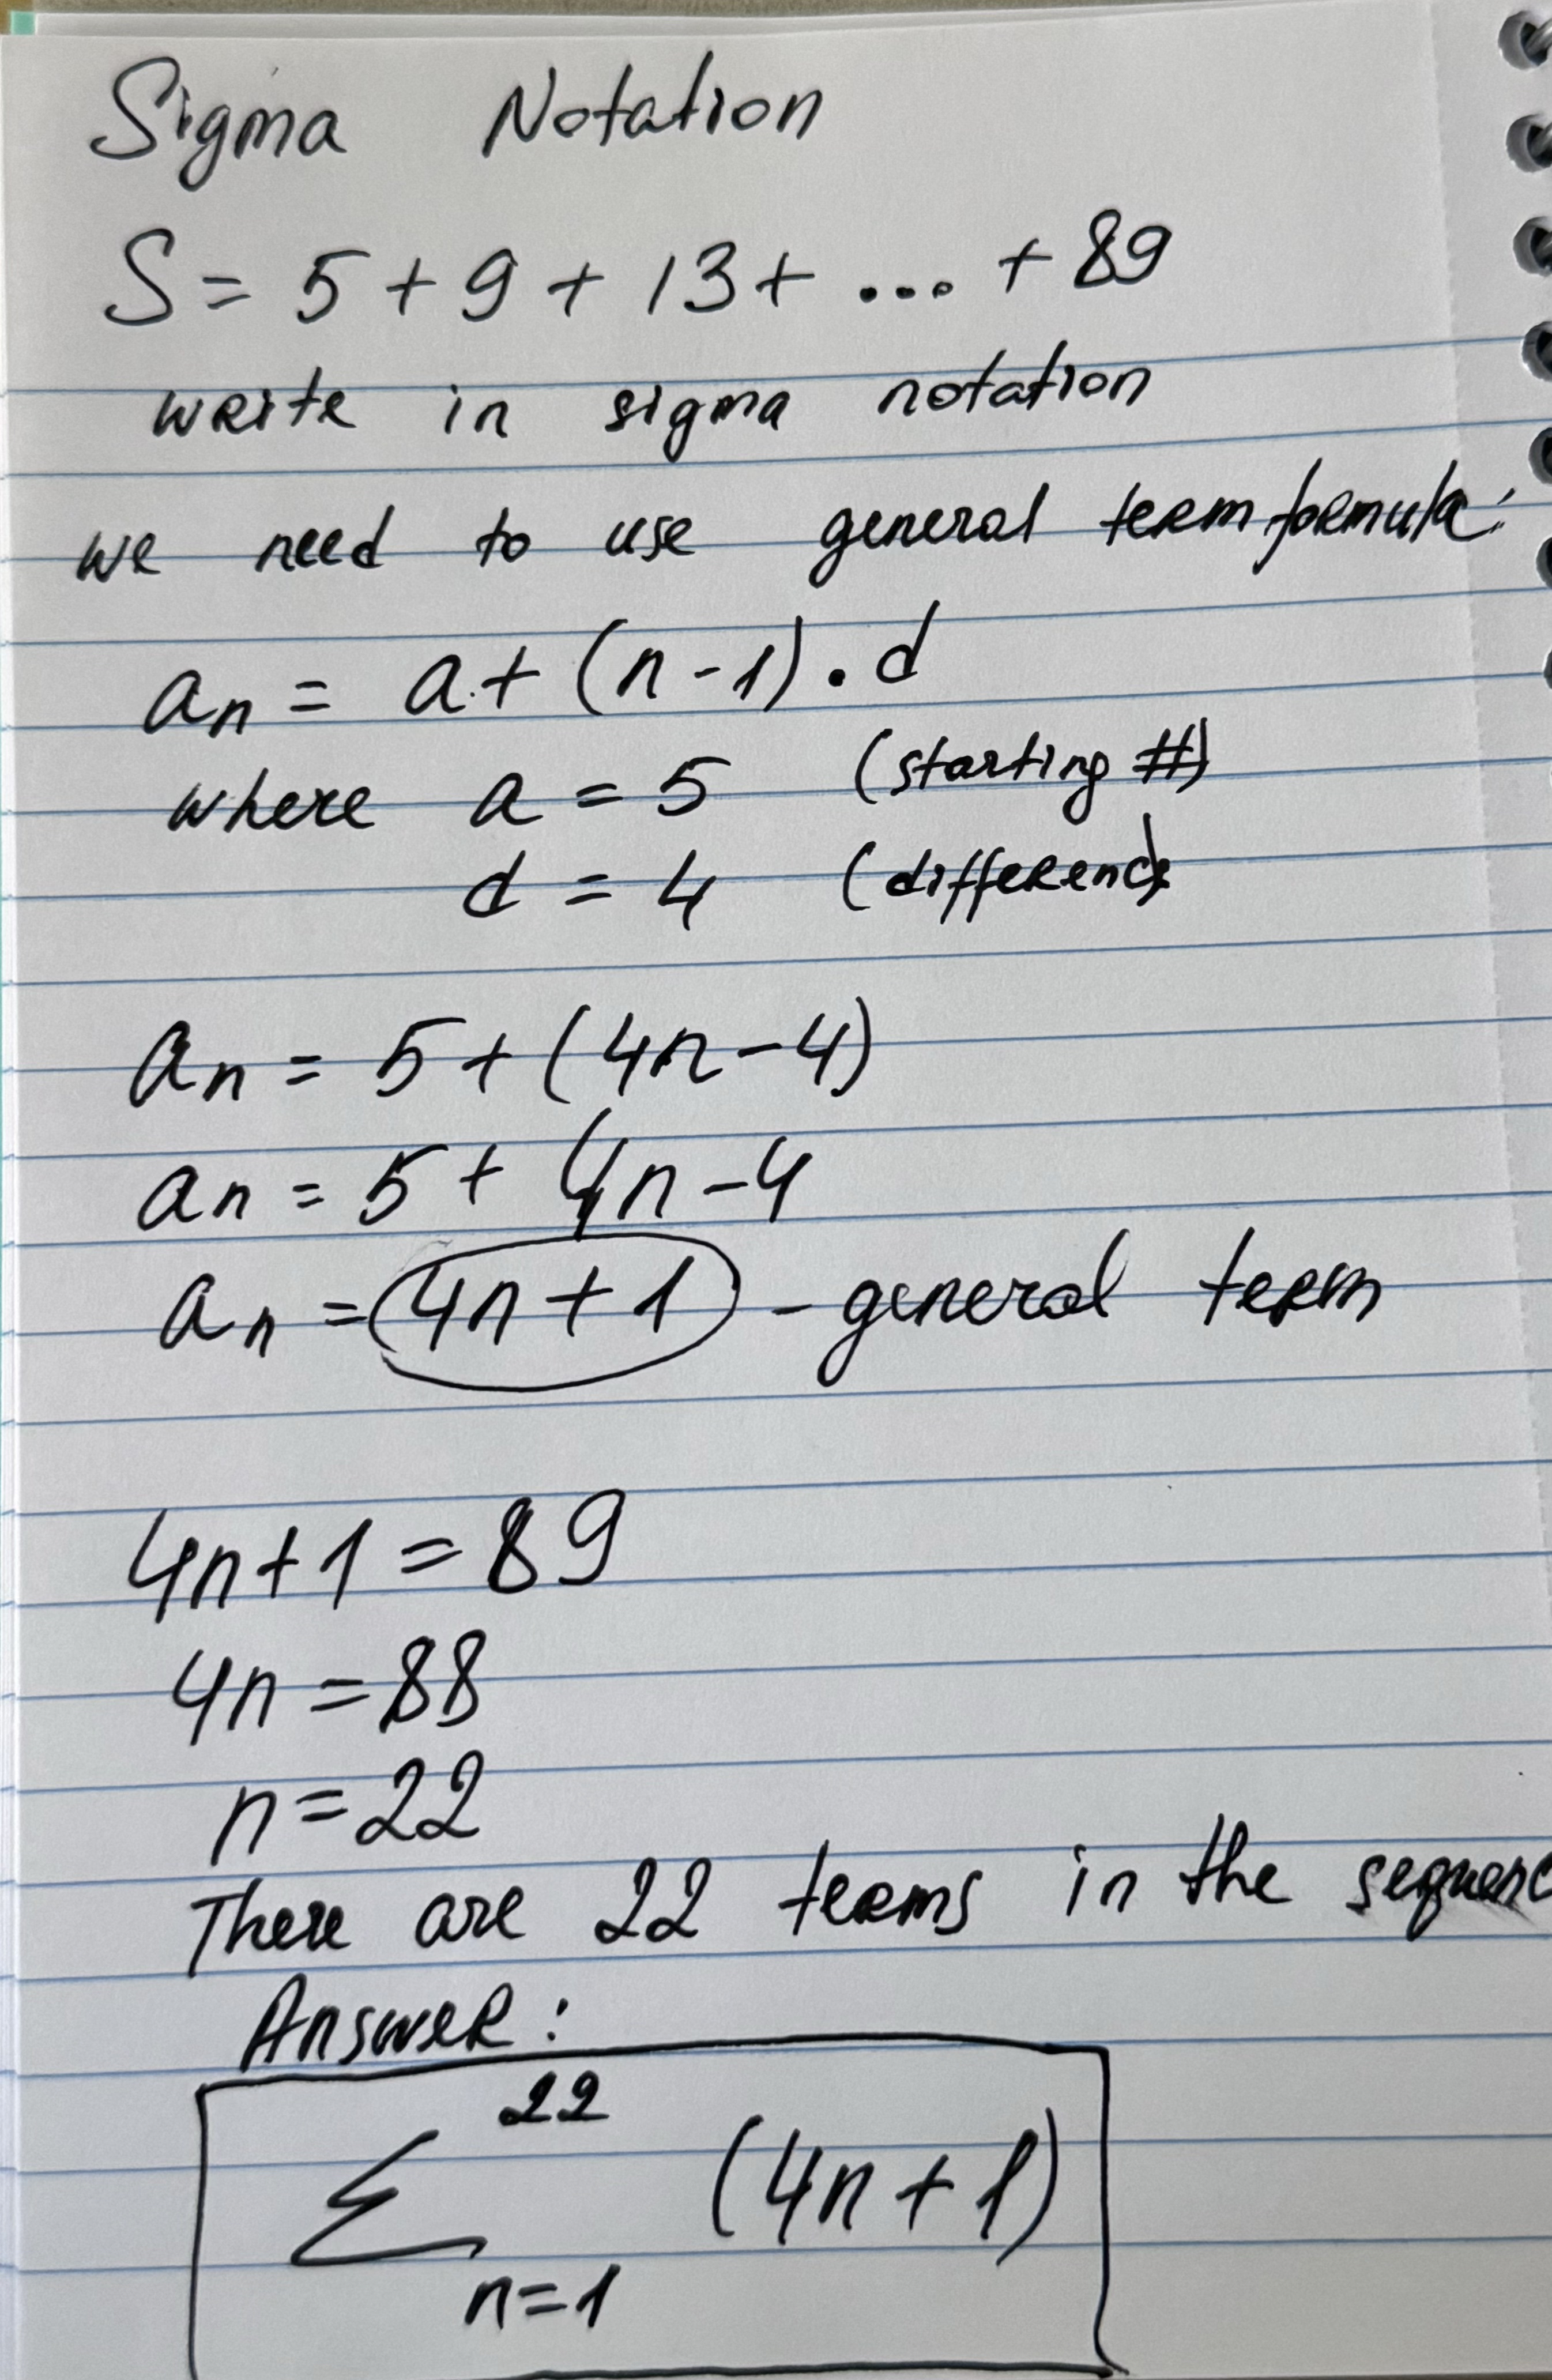 Sigma Notation
S = 5 + 9 + 13 + ... + 89
write in sigma notation
we need to use general term formula:
an = a + (n - 1) · d
where a = 5 (starting #)
d = 4 (difference)
an = 5 + (4n - 4)
an = 5 + 4n - 4
an = 4n + 1 - general term
4n + 1 = 89
4n = 88
n = 22
There are 22 terms in the sequenc
Answer:
22
Σ (4n + 1)
n = 1